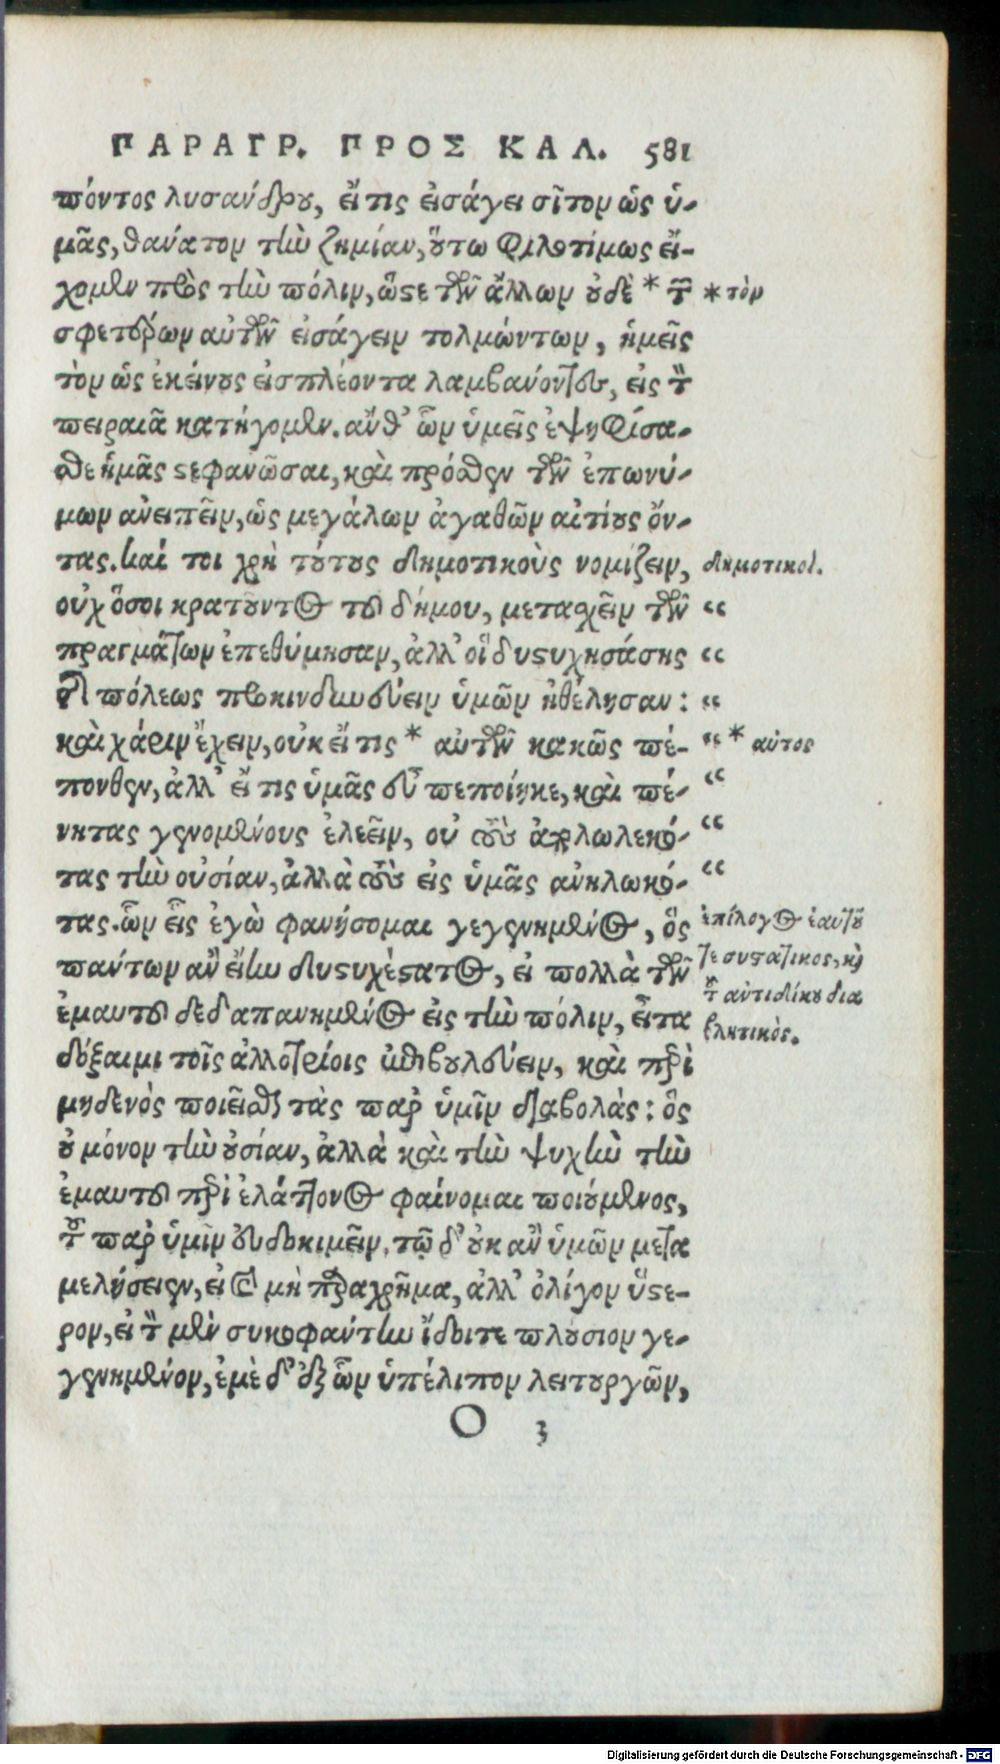 ΠΑΡΑΓΡ. ΠΡΟΣ ΚΑΛ. 581
πόντος λυσάνδρου, εἴ τις εἰσάγει σῖτον ὡς ὑ-
μᾶς, θάνατον τὴν ζημίαν, οὕτω φιλοτίμως εἴ-
χομεν πρὸς τὴν πόλιν, ὥστε τῶν ἄλλων οὐδὲ * τῶν
σφετέρων αὐτῶν εἰσάγειν τολμώντων, ἡμεῖς
τὸν ὡς ἐκείνους εἰσπλέοντα λαμβάνοντες, εἰς τὸν
πειραιᾶ κατήγομεν. ἀνθ' ὧν ὑμεῖς ἐψηφίσα-
σθε ἡμᾶς στεφανῶσαι, καὶ πρόσθεν τῶν ἐπωνύ-
μων ἀνειπεῖν, ὡς μεγάλων ἀγαθῶν αἰτίους ὄν-
τας. καί τοι χρὴ τούτους δημοτικοὺς νομίζειν,
οὐχ ὅσοι κρατοῦντος τοῦ δήμου, μετασχεῖν τῶν
πραγμάτων ἐπεθύμησαν, ἀλλ' οἳ δυστυχησάσης
τῆς πόλεως προκινδυνεύειν ὑμῶν ἠθέλησαν:
καὶ χάριν ἔχειν, οὐκ εἴ τις * αὐτῶν κακῶς πέ-
πονθεν, ἀλλ' εἴ τις ὑμᾶς εὖ πεποίηκε, καὶ πέ-
νητας γενομένους ἐλεεῖν, οὐ τοὺς ἀπολωλεκό-
τας τὴν οὐσίαν, ἀλλὰ τοὺς εἰς ὑμᾶς ἀνηλωκό-
τας. ὧν εἷς ἐγὼ φανήσομαι γεγενημένος, ὃς
πάντων ἂν εἴην δυστυχέστατος, εἰ πολλὰ τῶν
ἐμαυτοῦ δεδαπανημένος εἰς τὴν πόλιν, εἶτα
δόξαιμι τοῖς ἀλλοτρίοις ἐπιβουλεύειν, καὶ περὶ
μηδενὸς ποιεῖσθαι τὰς παρ' ὑμῖν διαβολάς: ὃς
οὐ μόνον τὴν οὐσίαν, ἀλλὰ καὶ τὴν ψυχὴν τὴν
ἐμαυτοῦ περὶ ἐλάττονος φαίνομαι ποιούμενος,
τοῦ παρ' ὑμῖν εὐδοκιμεῖν. τῷ δ' οὐκ ἂν ὑμῶν μετα
μελήσειεν, εἰ καὶ μὴ παραχρῆμα, ἀλλ' ὀλίγον ὕστε-
ρον, εἰ τὸν μὲν συκοφάντην ἴδοιτε πλούσιον γε-
γενημένον, ἐμὲ δ' ἐξ ὧν ὑπέλιπον λειτουργῶν,
O 3
* τὸν
δημοτικοί.
“
“
“
“ * αὐτὸς
“
“
“
ἐπίλογος ἑαυτοῦ
τε συστατικος, κὶ
τοῦ ἀντιδίκου δια
βλητικὸς.
Digitalisierung gefördert durch die Deutsche Forschungsgemeinschaft - DFG